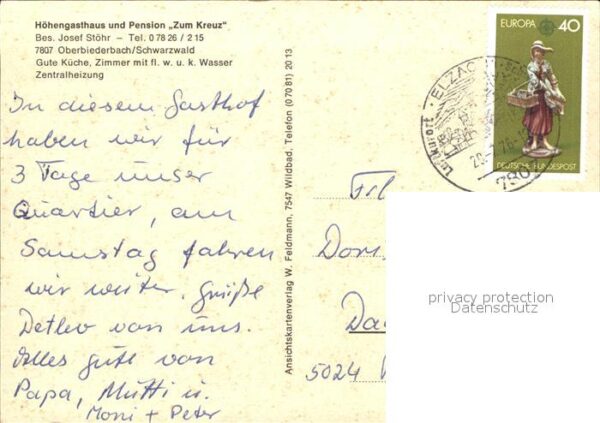 Höhengasthaus und Pension „Zum Kreuz"
Bes. Josef Stöhr – Tel. 0 78 26 / 2 15
7807 Oberbiederbach/Schwarzwald
Gute Küche, Zimmer mit fl. w. u. k. Wasser
Zentralheizung
In diesem Gasthof
haben wir für
3 Tage unser
Quartier, am
Samstag fahren
wir weiter. Grüße
Detlev von uns.
Alles gute von
Papa, Mutti u.
Moni + Peter
Ansichtskartenverlag W. Feldmann, 7547 Wildbad, Telefon (0 70 81) 20 13
EUROPA 40
DEUTSCHE BUNDESPOST
Luftkurort · ELZACH
Frl
Dor
Da
5024
privacy protection
Datenschutz